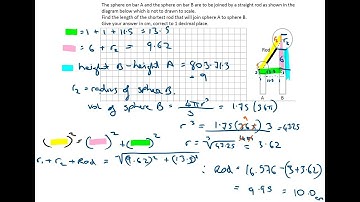 The sphere on bar A and the sphere on bar B are to be joined by a straight rod as shown in the
diagram below which is not to drawn to scale.
Find the length of the shortest rod that will join sphere A to sphere B.
Give your answer in cm, correct to 1 decimal place.
= 1 + 1 + 11.5 = 13.5
= 6 + r₂ = 9.62
height B - height A = 803.7-31.3
= 9
r₂ = radius of sphere B.
vol of sphere B = 4πr³/3 = 1.75 (36π)
r³ = 1.75(36π) 3 / 4π = 47.25
r = ³√47.25 = 3.62
( )² = ( )² + ( )²
r₁ + r₂ + Rod = √(9.62)² + (13.5)²
∴ Rod = 16.576 - (3+3.62)
= 9.95 = 10.0 cm
Rod
A
B